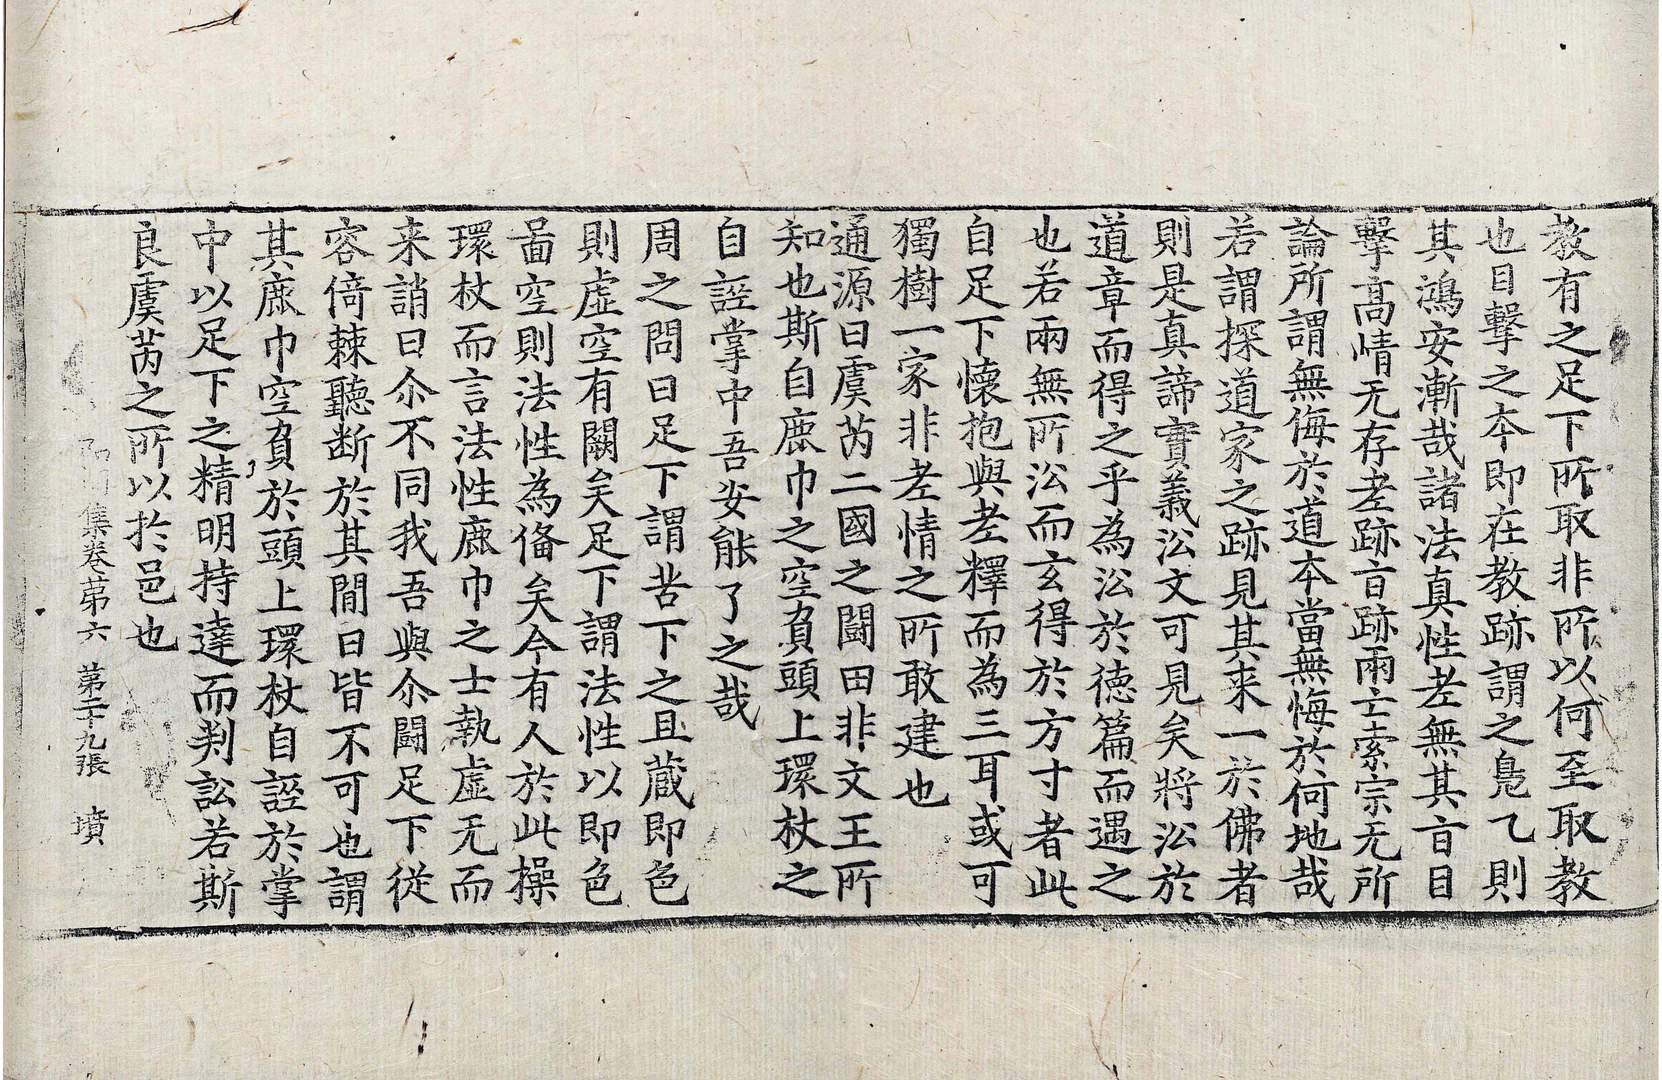 教有之足下所取非所以何至取教
也目擊之本即在教跡謂之鳧乙則
其鴻安漸哉諸法真性老無其盲目
擊高情无存老跡盲跡兩亡索宗无所
論所謂無侮於道本當無悔於何地哉
若謂探道家之跡見其来一於佛者
則是真諦實義㳂文可見矣將㳂於
道章而得之乎為㳂於德篇而遇之
也若兩無所㳂而玄得於方寸者此
自足下懷抱與老釋而為三耳或可
獨樹一家非老情之所敢建也
通源曰虞芮二國之鬪田非文王所
知也斯自鹿巾之空負頭上環杖之
自誣掌中吾安能了之哉
周之問曰足下謂苦下之且蔵即色
則虛空有闕矣足下謂法性以即色
啚空則法性為俻矣今有人於此操
環杖而言法性鹿巾之士執虛无而
来誚曰尒不同我吾與尒鬪足下從
容倚棘聽断於其間曰皆不可也謂
其鹿巾空負於頭上環杖自誣於掌
中以足下之精明持達而判訟若斯
良虞芮之所以於邑也
集卷苐六 第二十九張 墳